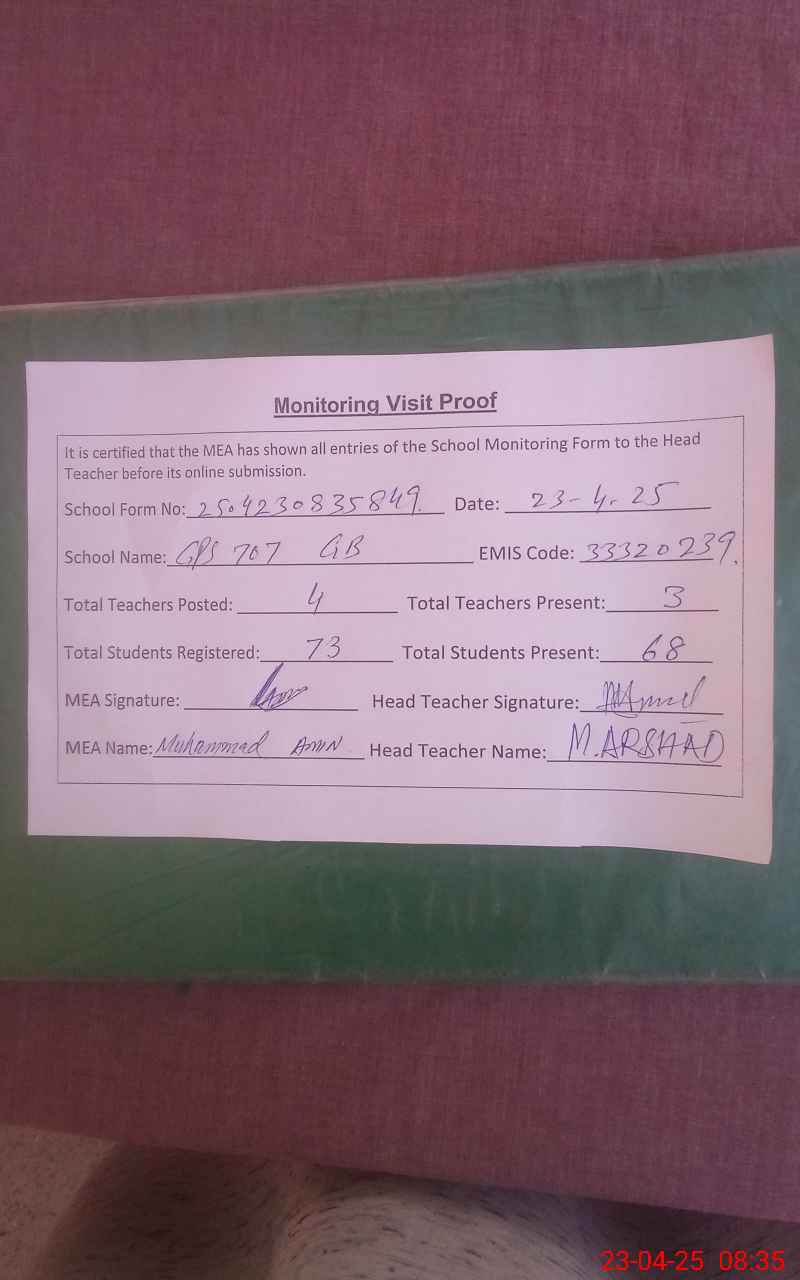 Monitoring Visit Proof
It is certified that the MEA has shown all entries of the School Monitoring Form to the Head
Teacher before its online submission.
School Form No: 2504230835849. Date: 23-4-25
School Name: GPS 707 GB EMIS Code: 33320239.
Total Teachers Posted: 4 Total Teachers Present: 3
Total Students Registered: 73 Total Students Present: 68
MEA Signature: Head Teacher Signature:
MEA Name: Muhammad AMIN Head Teacher Name: M.ARSHAD
23-04-25 08:35